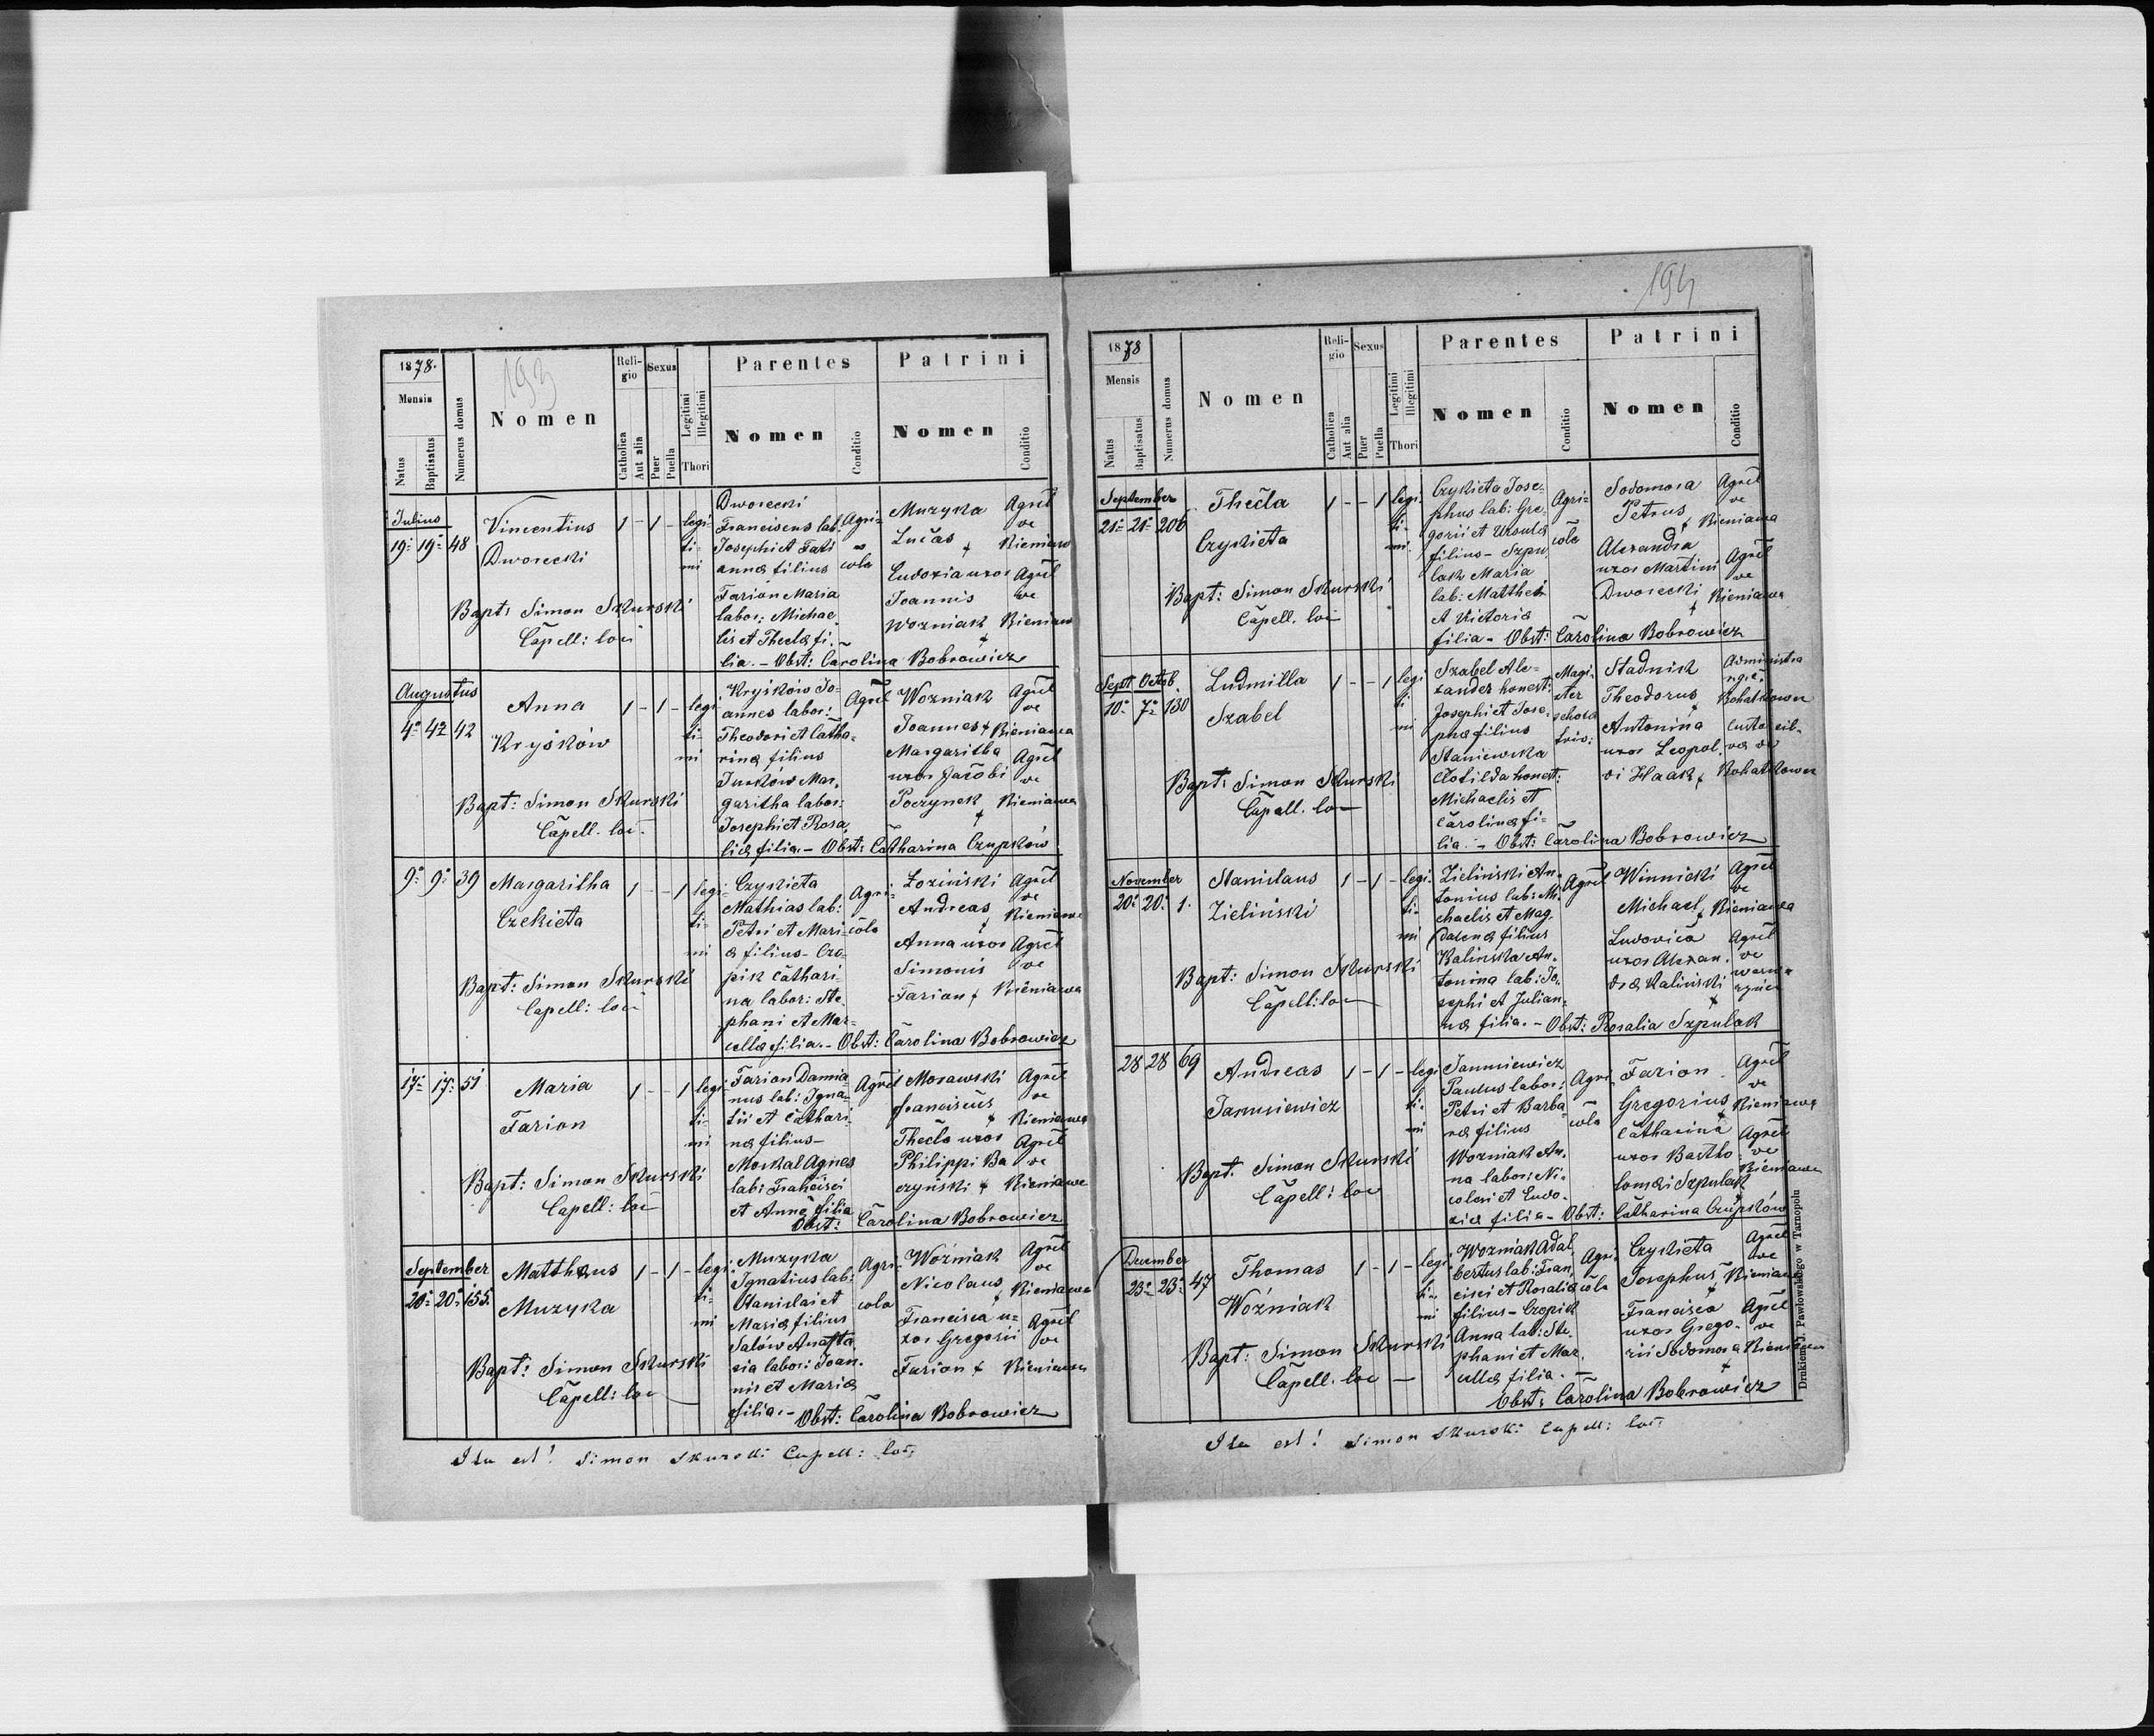 193
1878.
Mensis
Natus
Baptisatus
Numerus domus
Nomen
Religio
Catholica
Aut alia
Sexus
Puer
Puella
Legitimi
Illegitimi
Thori
Parentes
Nomen
Conditio
Patrini
Nomen
Conditio
Julius
19 19 48
Vincentius
Dworecki
1 - 1 -
legi-
ti-
mi
Bapt: Simon Skurski
Capell: loci
Dworecki
Franciscus lab:
Josephi et Tati
annæ filius
Farion Maria
labor: Michae
lis et Theclæ fi-
lia. - Obst: Carolina Bobrowicz
Agri-
cola
Muzyka
Lucas
Eudoxia uxor
Joannis
Wozniak
Agricol
ve
Kieniaw
Agricol
ve
Kieniaw
Augustus
4 42 42
Anna
Kryśków
1 - 1 -
legi
ti-
mi
Bapt: Simon Skurski
Capell. loci
Kryśków Jo-
annes labor:
Theodori et Catha-
rinæ filius
Mar-
garitha labor:
Josephi et Rosa-
liæ filia. - Obst: Catharina Czupsków
Agricol
Wozniak
Joannes
Margaritha
uxor Jacobi
Poczynek
Agricol
ve
Kieniawa
Agricol
ve
Kieniawa
9 9 39
Margaritha
Czekieta
1 - - 1
legi-
ti-
mi
Bapt: Simon Skurski
Capell: loci
Czykieta
Mathias lab:
Petri et Mari-
æ filius - Czo-
pik Cathari-
na labor: Ste-
phani et Mar-
cellæ filia. - Obst: Carolina Bobrowicz
Agri-
cola
Łoziński
Andreas
Anna uxor
Simonis
Farion
Agricol
ve
Kieniawa
Agricol
ve
Kieniawa
17 17 51
Maria
Farion
1 - - 1
legi
ti-
mi
Bapt: Simon Skurski
Capell: loci
Farion Damia-
nus lab: Igna-
tii et Cathari-
næ filius -
Moskal Agnes
lab: Francisci
et Annæ filia
Obst: Carolina Bobrowicz
Agricol
Morawski
Franciscus
Thecla uxor
Philippi Ba
czyński
Agricol
ve
Kieniawa
Agricol
ve
Kieniawa
September
20 20 155
Matthæus
Muzyka
1 - 1 -
legi-
ti-
mi
Bapt: Simon Skurski
Capell: loc
Muzyka
Ignatius lab:
Stanislai et
Mariæ filius
Salów Anasta-
sia labor: Joan-
nis et Mariæ
filia. - Obst: Carolina Bobrowicz
Agri-
cola
Woźniak
Nicolaus
Francisca u-
xor Gregorii
Farion
Agricol
ve
Kieniawa
Agricol
ve
Kieniawa
Ita est! Simon Skurski Capell: loci
194
1878
Mensis
Natus
Baptisatus
Numerus domus
Nomen
Religio
Catholica
Aut alia
Sexus
Puer
Puella
Legitimi
Illegitimi
Thori
Parentes
Nomen
Conditio
Patrini
Nomen
Conditio
September
21 21 206
Thecla
Czykieta
1 - - 1
legi-
ti-
mi.
Bapt: Simon Skurski
Capell. loci
Czykieta Jose-
phus lab: Gre-
gorii et Ursulæ
filius - Szpu
lak Maria
lab: Matthei
et Victoriæ
filia - Obst: Carolina Bobrowicz
Agri-
cola
Sodomora
Petrus
Alexandra
uxor Martini
Dworecki
Agricol
ve
Kieniawa
Agricol
ve
Kieniawa
Sept Octob.
10 7 130
Ludmilla
Szabel
1 - - 1
legi
ti
mi
Bapt: Simon Skurski
Capell. loc
Szabel Ale-
xander honest:
Josephi et Jose-
phæ filius
Staniewska
Clotilda honest:
Michaelis et
Carolinæ fi-
lia. - Obst: Carolina Bobrowicz
Magi-
ster
scholæ
Stadnik
Theodorus
Antonina
uxor Leopol-
di Haak
Administra
Bohatkowce
Bohatkowce
November
20 20 1.
Stanislaus
Zieliński
1 - 1 -
legi-
ti-
mi
Bapt: Simon Skurski
Capell: loc
Zieliński An-
tonius lab: Mi-
chaelis et Mag-
dalenæ filius
Kalińska An-
tonina lab: Jo-
sephi et Julian-
næ filia. - Obst: Rosalia Szpulak
Agricol
Winnicki
Michael
Ludovica
uxor Alexan-
dræ Kaliński
Agricol
ve
Kieniawa
Agricol
ve
28 28 69
Andreas
Januniewicz
1 - 1 -
legi
ti-
mi
Bapt. Simon Skurski
Capell: loc
Januniewicz
Paulus labor:
Petri et Barba-
ræ filius
Wozniak An-
na labor: Ni-
colai et Eudo-
xiæ filia - Obst: Catharina Czupsków
Agri-
cola
Farion
Gregorius
Catharina
uxor Bartho-
lomæi Szpulak
Agricol
ve
Kieniawa
Agricol
ve
Kieniawa
December
23 23 47
Thomas
Woźniak
1 - 1 -
legi
ti-
mi
Bapt: Simon Skurski
Capell. loc
Wozniak Adal-
bertus lab: Fran-
cisci et Rosaliæ
filius - Czopik
Anna lab: Ste-
phani et Mar-
cellæ filia. -
Obst: Carolina Bobrowicz
Agri-
cola
Czykieta
Josephus
Francisca
uxor Grego-
rii Sodomora
Agricol
ve
Kieniawa
Agricol
ve
Kieniawa
Ita est! Simon Skurski Capell: loci
Drukiem J. Pawłowskiego w Tarnopolu